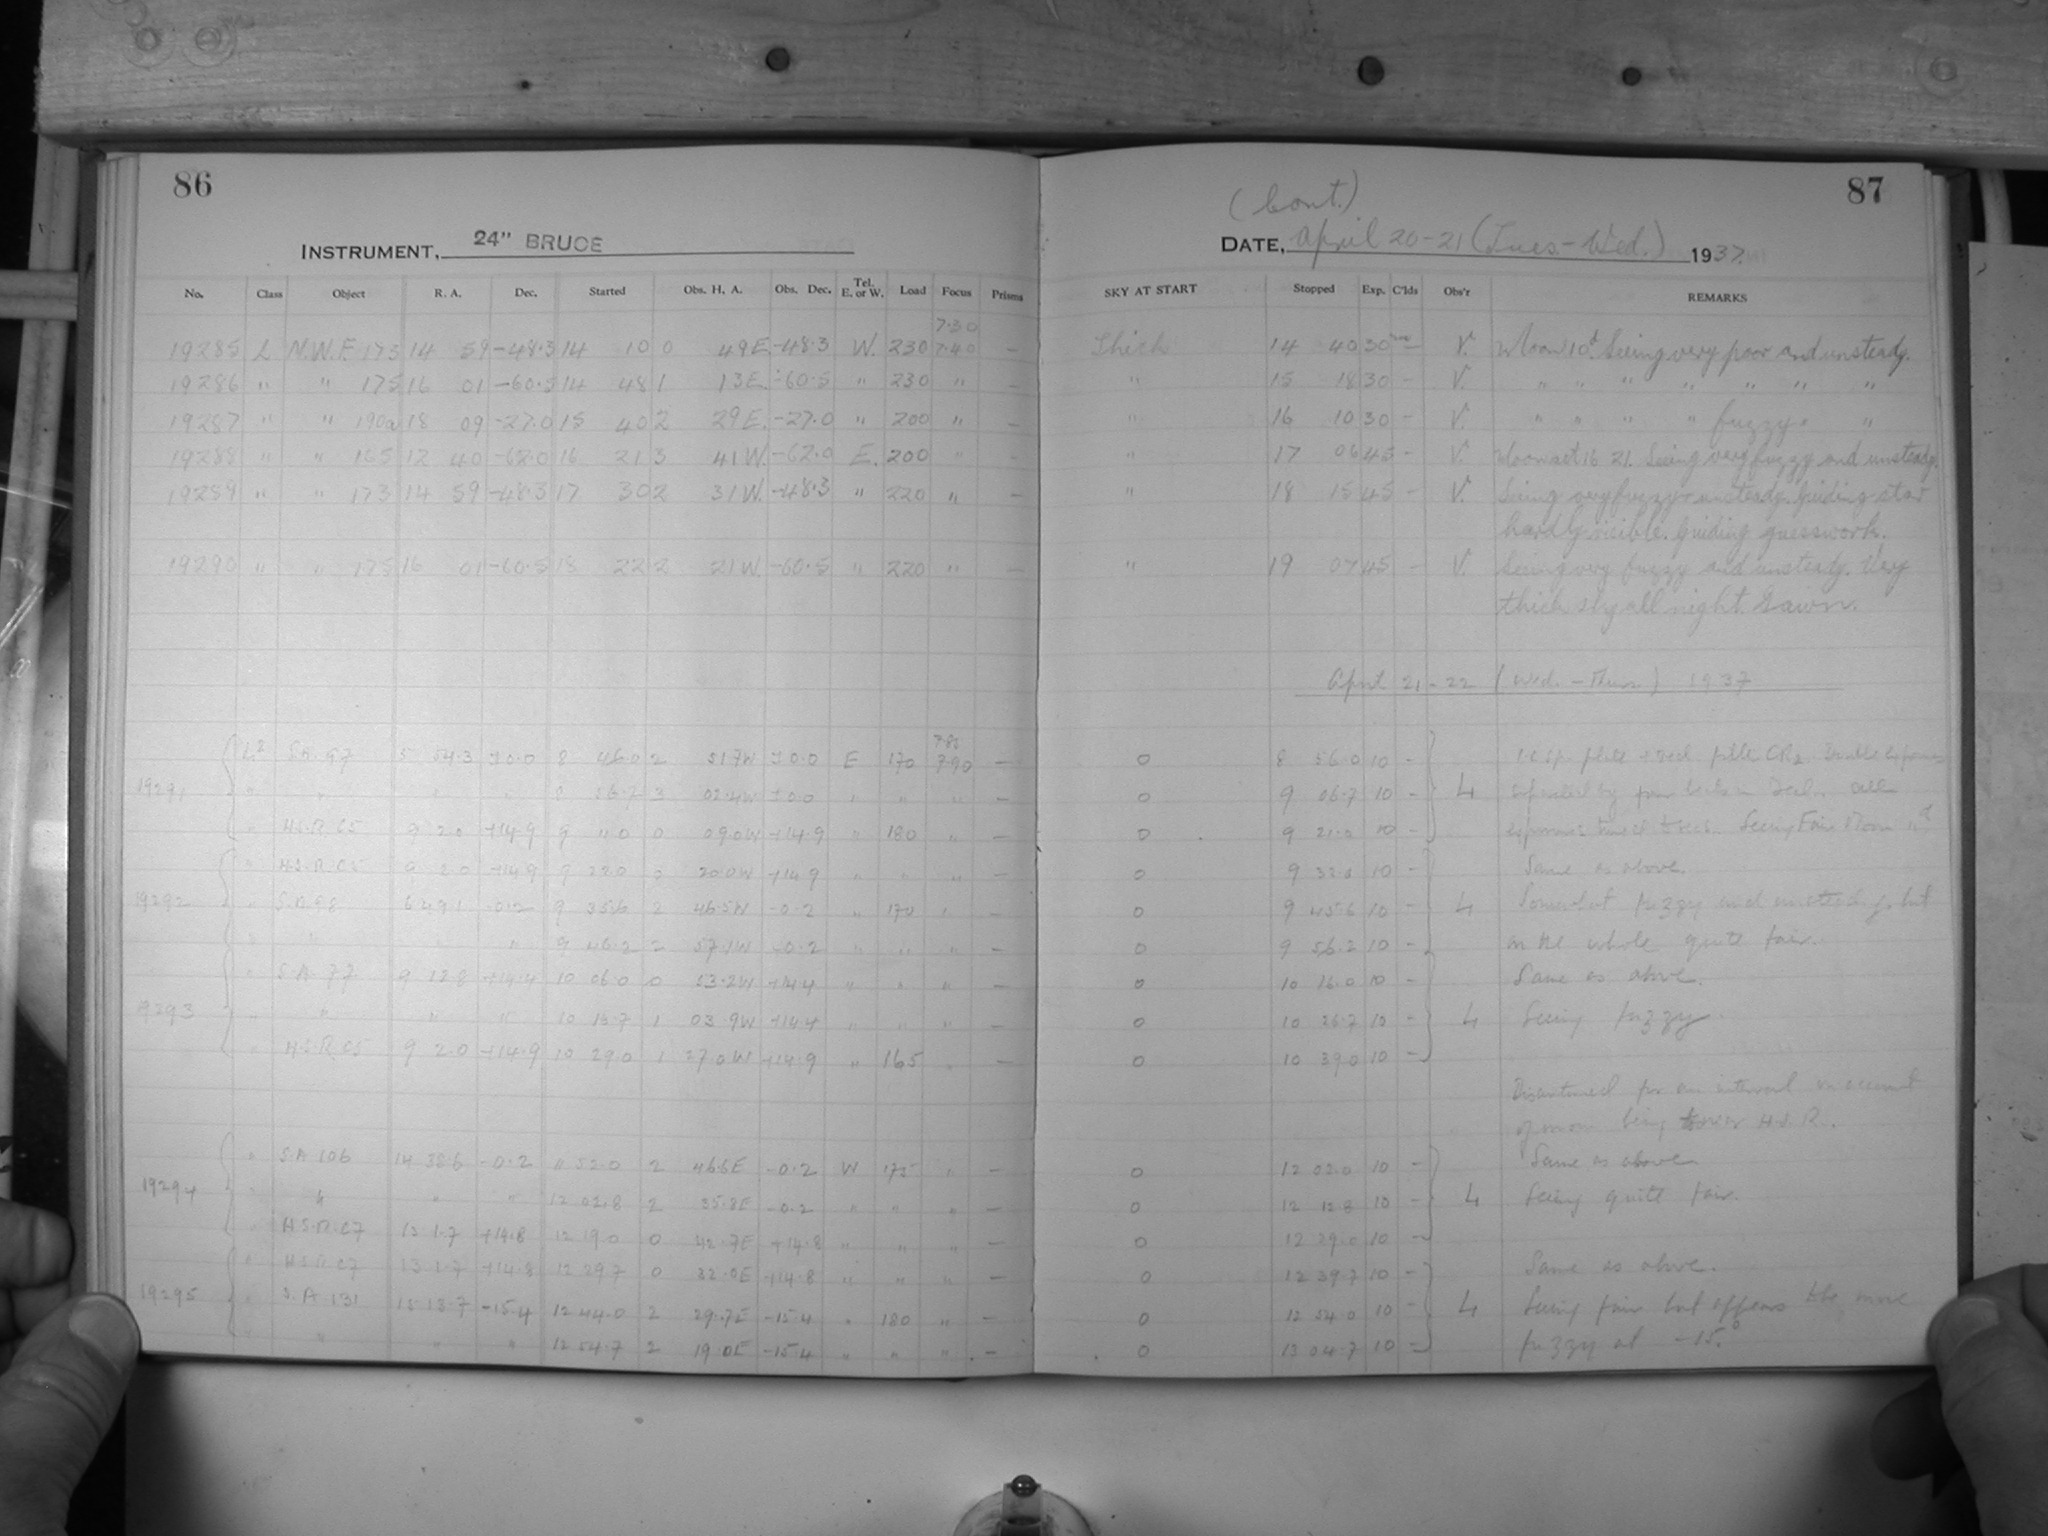 86
INSTRUMENT, 24" BRUCE
No. Class Object R. A. Dec. Started Obs. H. A. Obs. Dec. Tel. E. or W. Load Focus Prisms
7.30
19285 L N.W.F. 173 14 59 -48.3 14 10 0 49E. -48.3 W. 230 7.40 —
19286 " " 175 16 01 -60.5 14 48 1 13E. -60.5 " 230 " —
19287 " " 190a 18 09 -27.0 15 40 2 29E. -27.0 " 200 " —
19288 " " 165 12 40 -62.0 16 21 3 41W. -62.0 E. 200 " —
19289 " " 173 14 59 -48.3 17 30 2 31W. -48.3 " 220 " —
19290 " " 175 16 01 -60.5 18 22 2 21W. -60.5 " 220 " —
S.A. 97 5 54.3 ±0.0 8 46.0 2 51.7W ±0.0 E 170 7.90 —
19291 " " " " 8 56.7 3 02.4W ±0.0 " " " —
" H.S.R. C5 9 2.0 +14.9 9 11 0 0 09.0W +14.9 " 180 " —
" H.S.R. C5 9 2.0 +14.9 9 22.0 0 20.0W +14.9 " " " —
19292 " S.A. 98 6 49.1 -0.2 9 35.6 2 46.5W -0.2 " 170 " —
" " " " 9 46.2 2 57.1W -0.2 " " " —
" S.A. 77 9 12.8 +14.4 10 06.0 0 53.2W +14.4 " " " —
19293 " " " " 10 16.7 1 03.9W +14.4 " " " —
" H.S.R. C5 9 2.0 +14.9 10 29.0 1 27.0W +14.9 " 165 " —
" S.A 106 14 38.6 -0.2 11 52.0 2 46.6E -0.2 W 175 " —
19294 " " " " 12 02.8 2 35.8E -0.2 " " " —
" H.S.R. C7 13 1.7 +14.8 12 19.0 0 42.7E +14.8 " " " —
" H.S.R. C7 13 1.7 +14.8 12 29.7 0 32.0E +14.8 " " " —
19295 " S.A 131 15 13.7 -15.4 12 44.0 2 29.7E -15.4 " 180 " —
" " " " 12 54.7 2 19.0E -15.4 " " " —
87
(Cont.)
DATE, April 20-21 (Tues.-Wed.) 1937.
SKY AT START Stopped Exp. C'lds Obs'r REMARKS
Thick 14 40 30 V. Moon 10d. Seeing very poor and unsteady.
" 15 18 30 - V. " " " " " " "
" 16 10 30 - V. " " " " fuzzy " "
" 17 06 45 - V. Moonset 16 21. Seeing very fuzzy and unsteady.
" 18 15 45 - V. Seeing very fuzzy + unsteady. Guiding star
hardly visible. Guiding guesswork.
" 19 07 45 - V. Seeing very fuzzy and unsteady. Very
thick sky all night. Dawn.
April 21-22 (Wed.-Thurs) 1937
0 8 56.0 10 -
0 9 06.7 10 - 4 separated by
0 9 21.0 10 - Seeing Fair Moon
0 9 32.0 10 - Same as above.
0 9 45.6 10 - 4 Somewhat fuzzy and unsteady, but
0 9 56.2 10 - on the whole quite fair.
0 10 16.0 10 - Same as above.
0 10 26.7 10 - 4 Seeing fuzzy.
0 10 39.0 10 -
Discontinued for an interval on account
of moon being near H.S.R.
0 12 02.0 10 - Same as above
0 12 12.8 10 - 4 Seeing quite fair.
0 12 29.0 10 -
0 12 39.7 10 - Same as above.
0 12 54.0 10 - 4 Seeing fair but appears more
0 13 04.7 10 - fuzzy at -15°